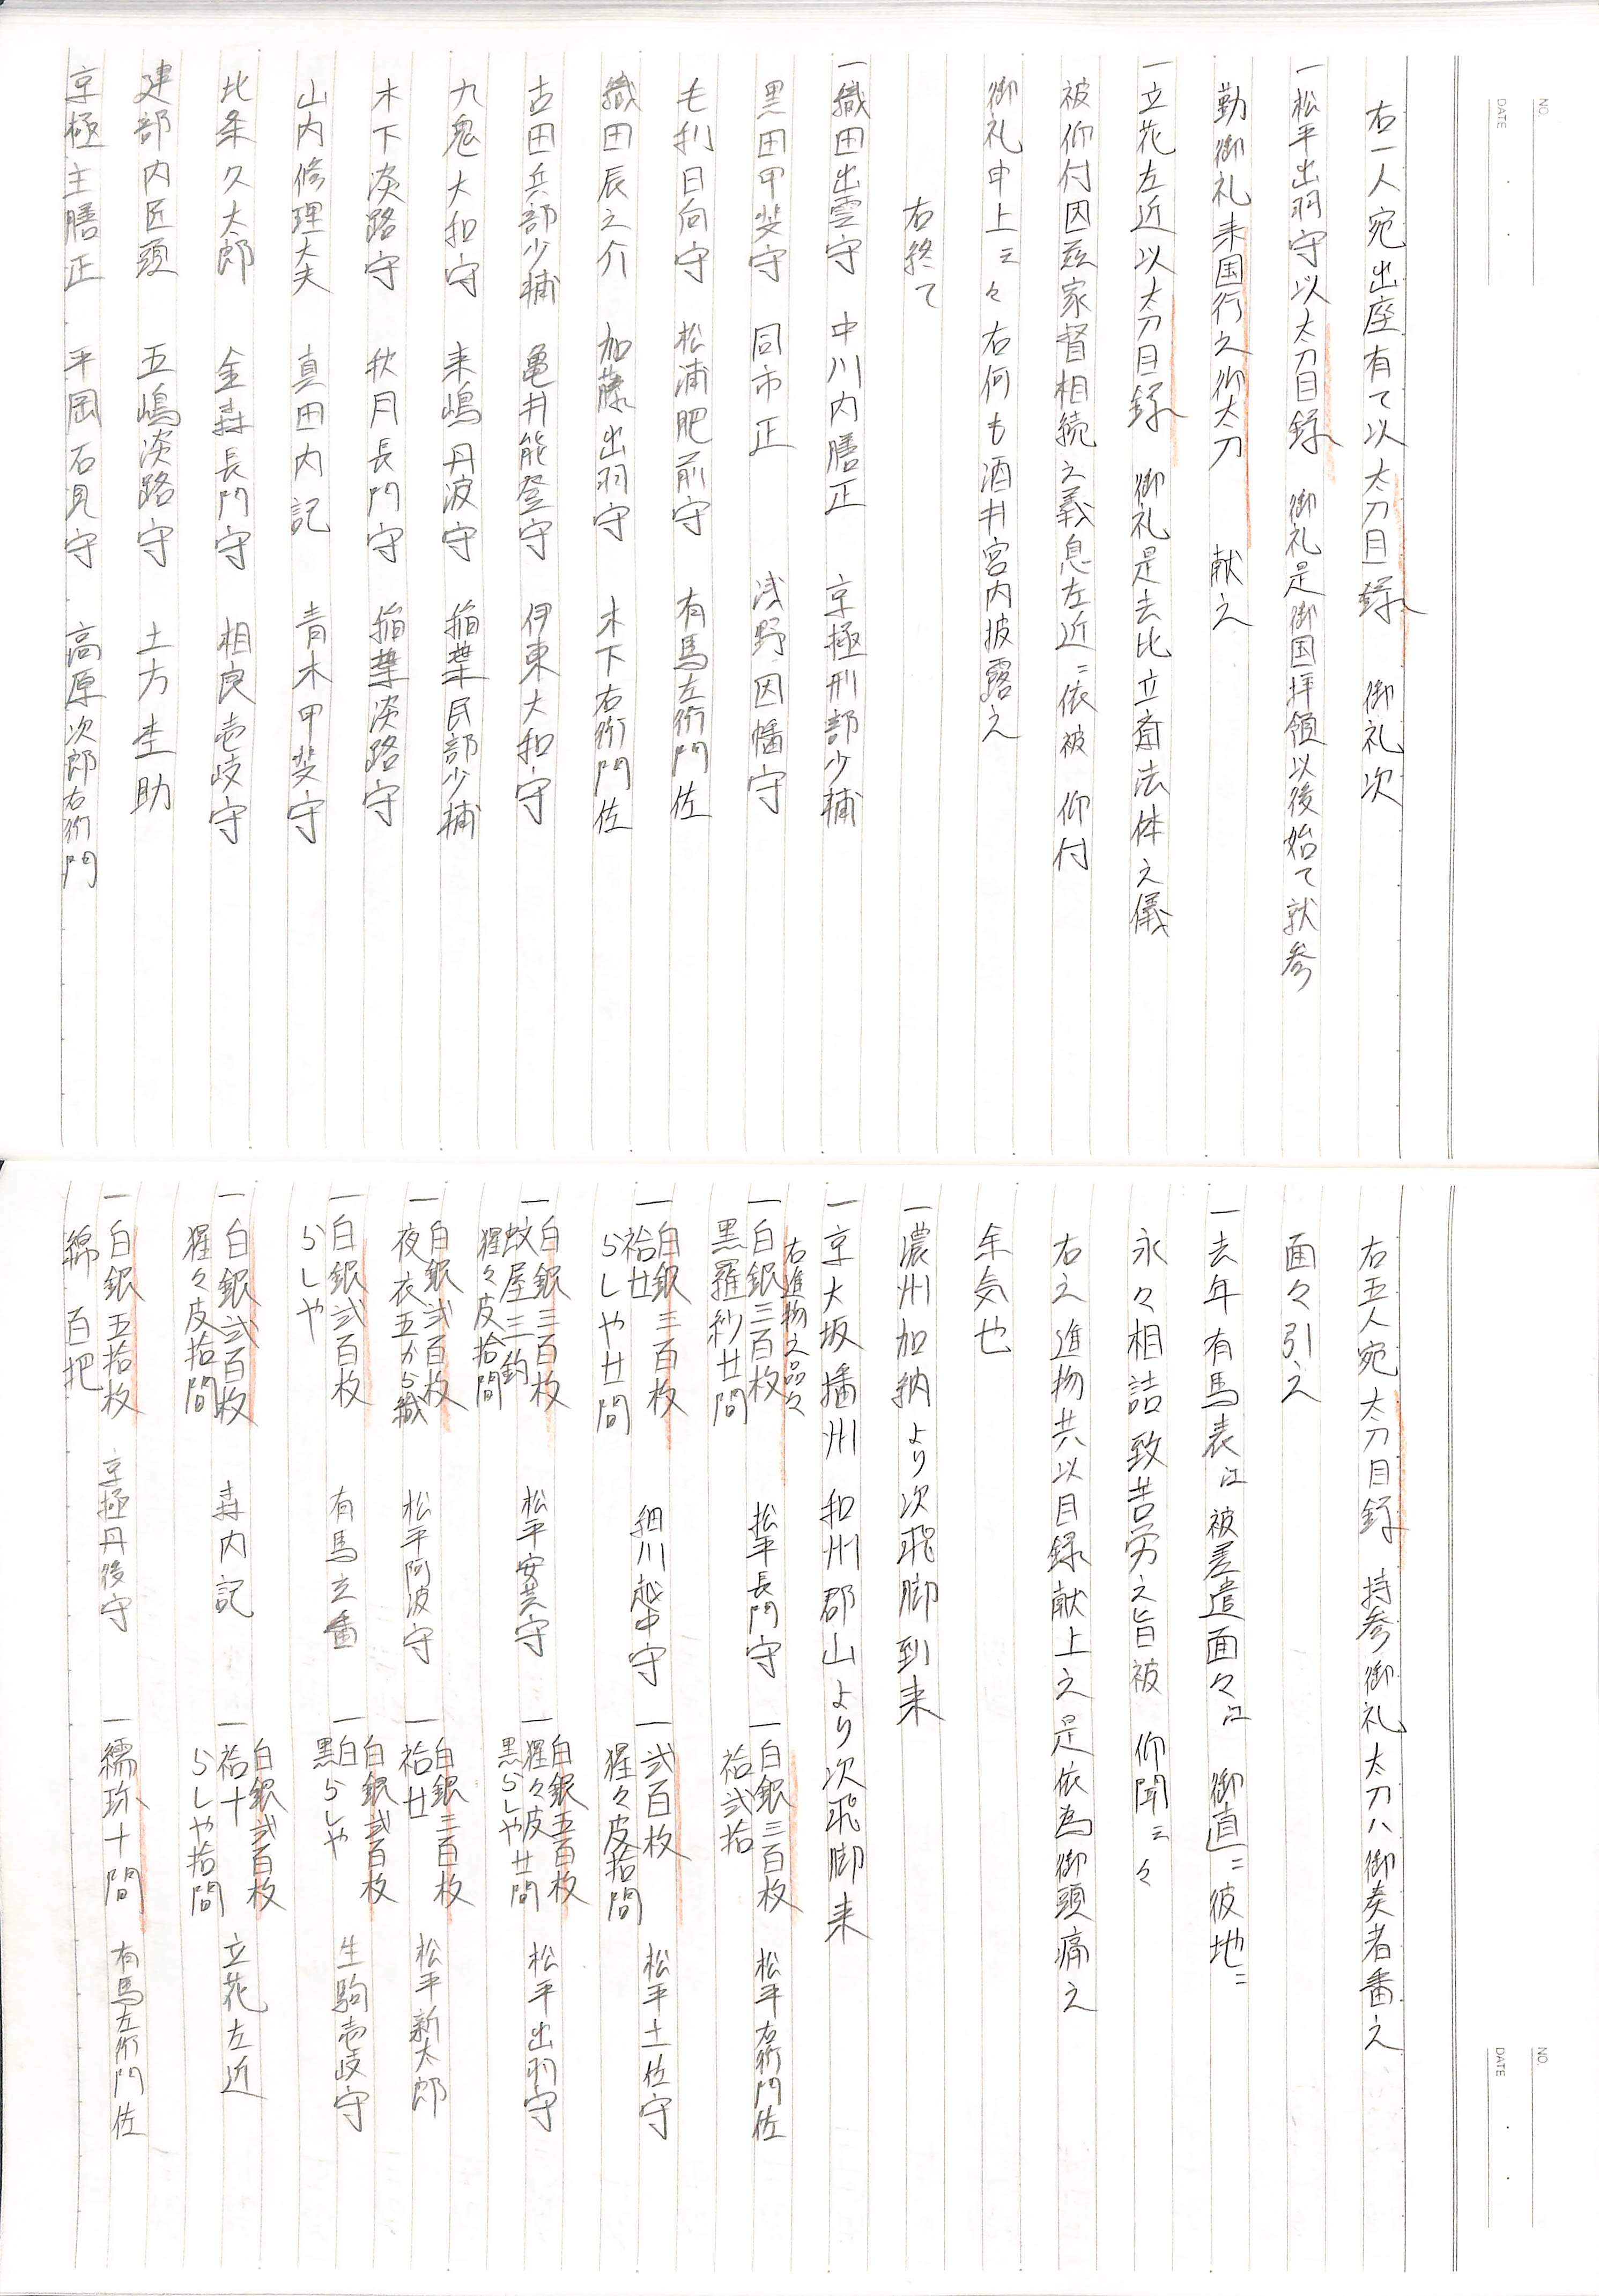 NO.
DATE
右一人宛出座有て以太刀目録 御礼次
一松平出羽守以太刀目録 御礼是御国拝領以後始て就参
勤御礼来国行之御太刀 献之
一立花左近以太刀目録 御礼是去比立斎法体之儀
被仰付因茲家督相続之義息左近ニ依被 仰付
御礼申上云々右何も酒井宮内披露之
右終て
一織田出雲守 中川内膳正 京極刑部少輔
黒田甲斐守 同市正 浅野因幡守
毛利日向守 松浦肥前守 有馬左衛門佐
織田辰之介 加藤出羽守 木下右衛門佐
古田兵部少輔 亀井能登守 伊東大和守
九鬼大和守 来嶋丹波守 稲葉民部少輔
木下淡路守 秋月長門守 稲葉淡路守
山内修理大夫 真田内記 青木甲斐守
北条久太郎 金森長門守 相良壱岐守
建部内匠頭 五嶋淡路守 土方杢助
京極主膳正 平岡石見守 高原次郎右衛門
NO.
DATE
右五人宛太刀目録 持参御礼太刀ハ御奏者番之
面々引之
一去年有馬表江被差遣面々江 御直ニ彼地ニ
永々相詰致苦労之旨被 仰聞云々
右之進物共以目録献上之是依為御頭痛之
余気也
一濃州加納より次飛脚到来
一京大坂播州 和州郡山より次飛脚来
右進物之品々
一白銀三百枚
黒羅紗廿間 松平長門守
一白銀三百枚
袷弐拾 松平右衛門佐
一白銀三百枚
袷廿
らしや廿間 細川越中守
一弐百枚
猩々皮拾間 松平土佐守
一白銀三百枚
蚊屋三釣
猩々皮拾間 松平安芸守
一白銀五百枚
猩々皮廿間
黒らしや 松平出羽守
一白銀弐百枚
夜衣五から織 松平阿波守
一白銀三百枚
袷廿 松平新太郎
一白銀弐百枚
らしや 有馬玄番
一白銀弐百枚
白
黒らしや 生駒壱岐守
一白銀弐百枚
猩々皮拾間 森内記
一白銀弐百枚
袷十
らしや拾間 立花左近
一白銀五拾枚
綿 百把 京極丹後守
一繻珍十間 有馬左衛門佐